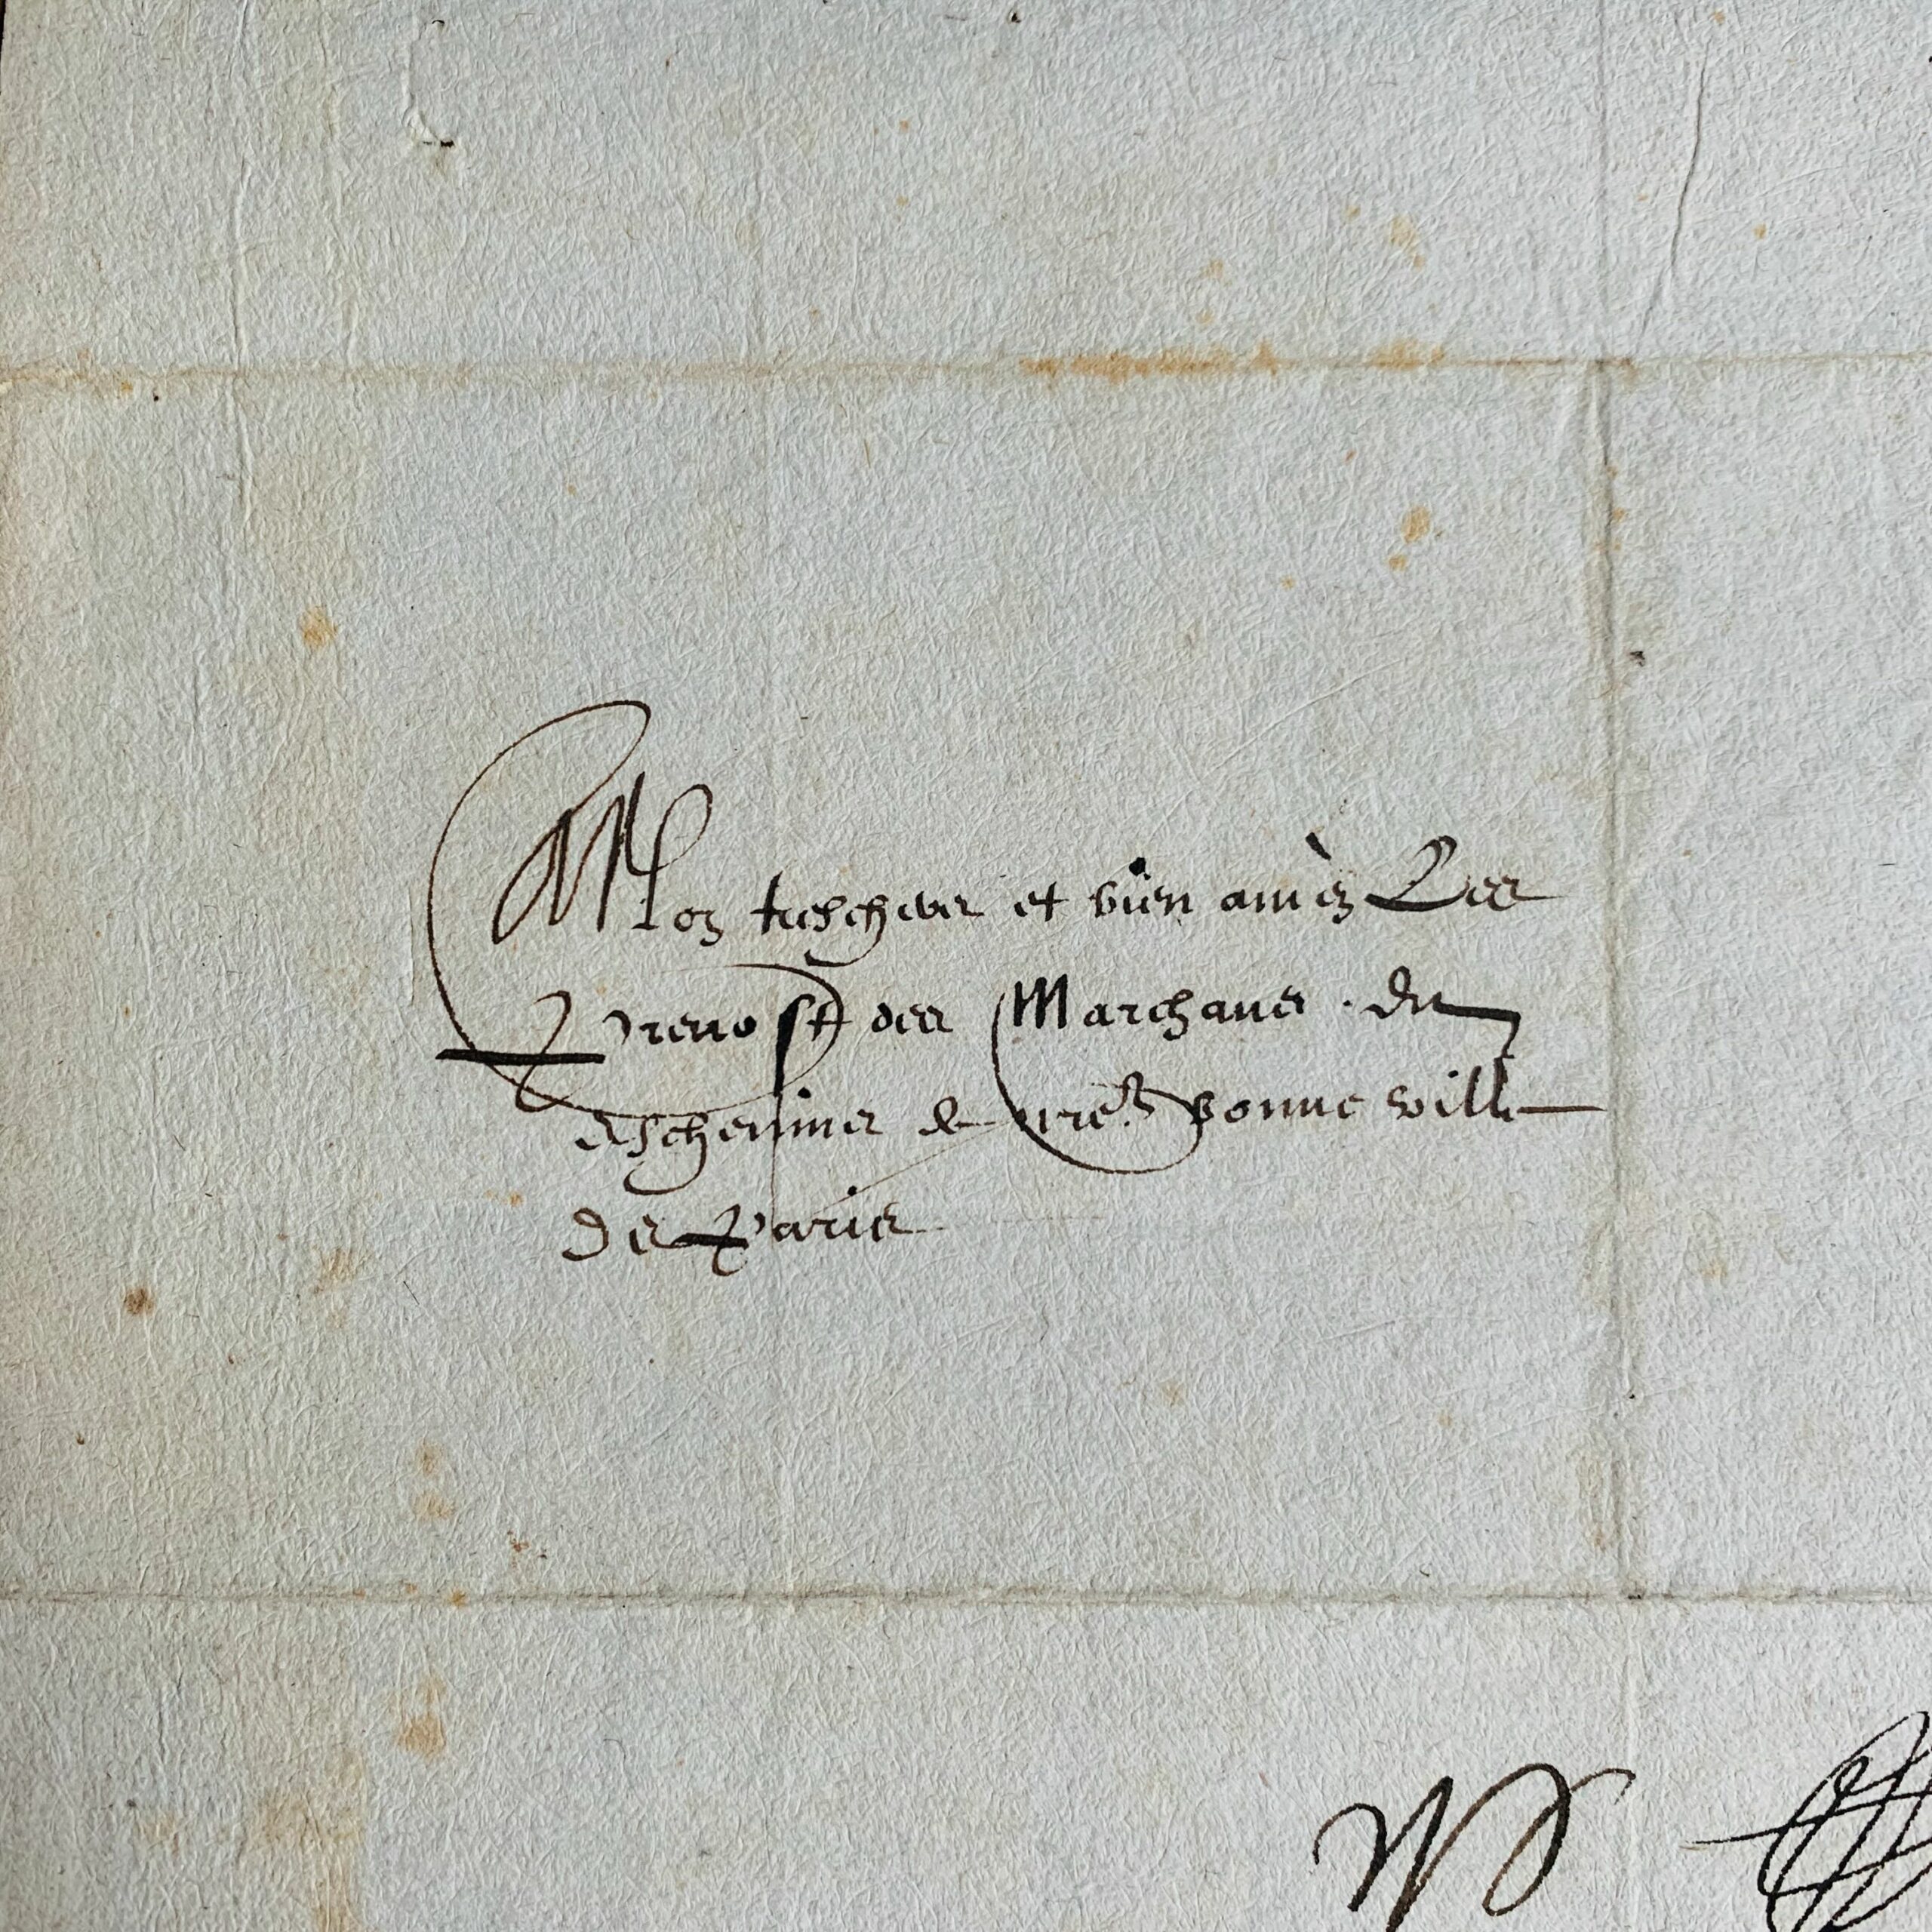 Noz treschers et bien amez Les
Prevost des Marchans . Et
eschevins de nre bonne ville
de Paris